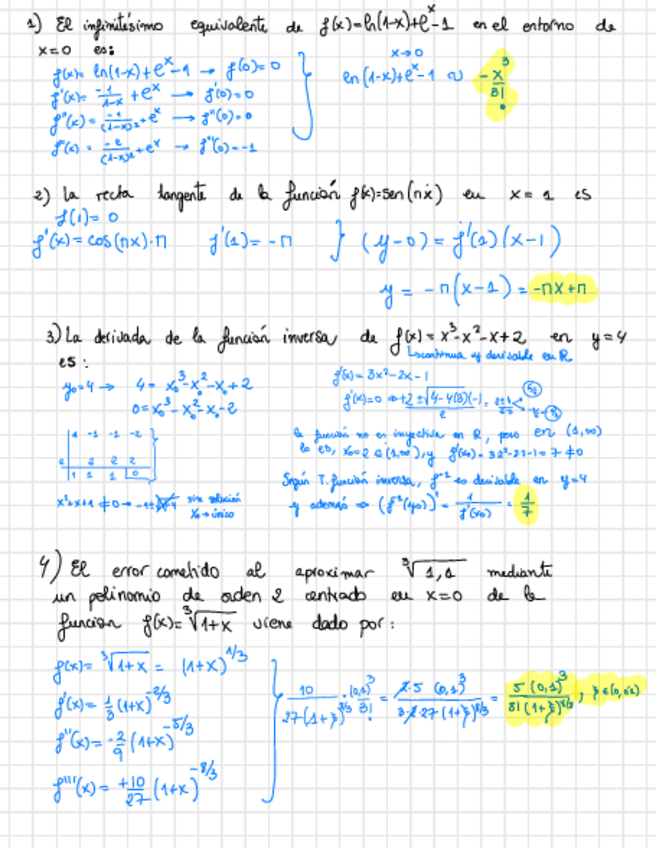 1) El infinitésimo equivalente de f(x)=ln(1-x)+e^x-1 en el entorno de
x=0 es:
f(x)= ln(1-x)+e^x-1 → f(0)=0
f'(x)= -1/(1-x) + e^x → f'(0)=0
f''(x)= -1/(1-x)^2 + e^x → f''(0)=0
→ f'''(0)=-1
x→0
ln(1-x)+e^x-1 ∼ -x^3/3!
2) La recta tangente de la función f(x)=sen(πx) en x=1 es
f(1)=0
f'(x)=cos(πx)·π f'(1)=-π } (y-0)=f'(1)(x-1)
y = -π(x-1) = -πx+π
3) La derivada de la función inversa de f(x)=x^3-x^2-x+2 en y=4
es:
↳ continua y derivable en R
y₀=4 → 4= x₀^3-x₀^2-x₀+2
0=x₀^3-x₀^2-x₀-2
1 -1 -1 -2
2 2 2 2
1 1 1 0
x^2+x+1≠0 → sin solución
x₀ → único
f'(x)=3x^2-2x-1
f'(x)=0
la función no es inyectiva en R, pero en (1,∞)
lo es, x₀=2∈(1,∞), y
Según T. función inversa, f^-1 es derivable en y=4
y además ⇒ (f^-1(y₀))' = 1/f'(x₀) = 1/7
4) El error cometido al aproximar ∛1,1 mediante
un polinomio de orden 2 centrado en x=0 de la
función f(x)=∛1+x viene dado por:
f(x)= ∛1+x = (1+x)^1/3
f'(x)= 1/3 (1+x)^-2/3
f''(x)= -2/9 (1+x)^-5/3
f'''(x)= +10/27 (1+x)^-8/3